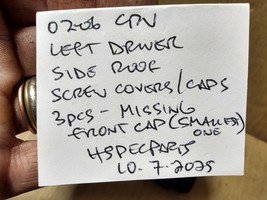 02-06 CRV
LEFT DRIVER
SIDE ROOF
SCREW COVERS/CAPS
3pcs - MISSING
FRONT CAP (SMALLEST)
ONE
HSPECPARTS
10.7.2025